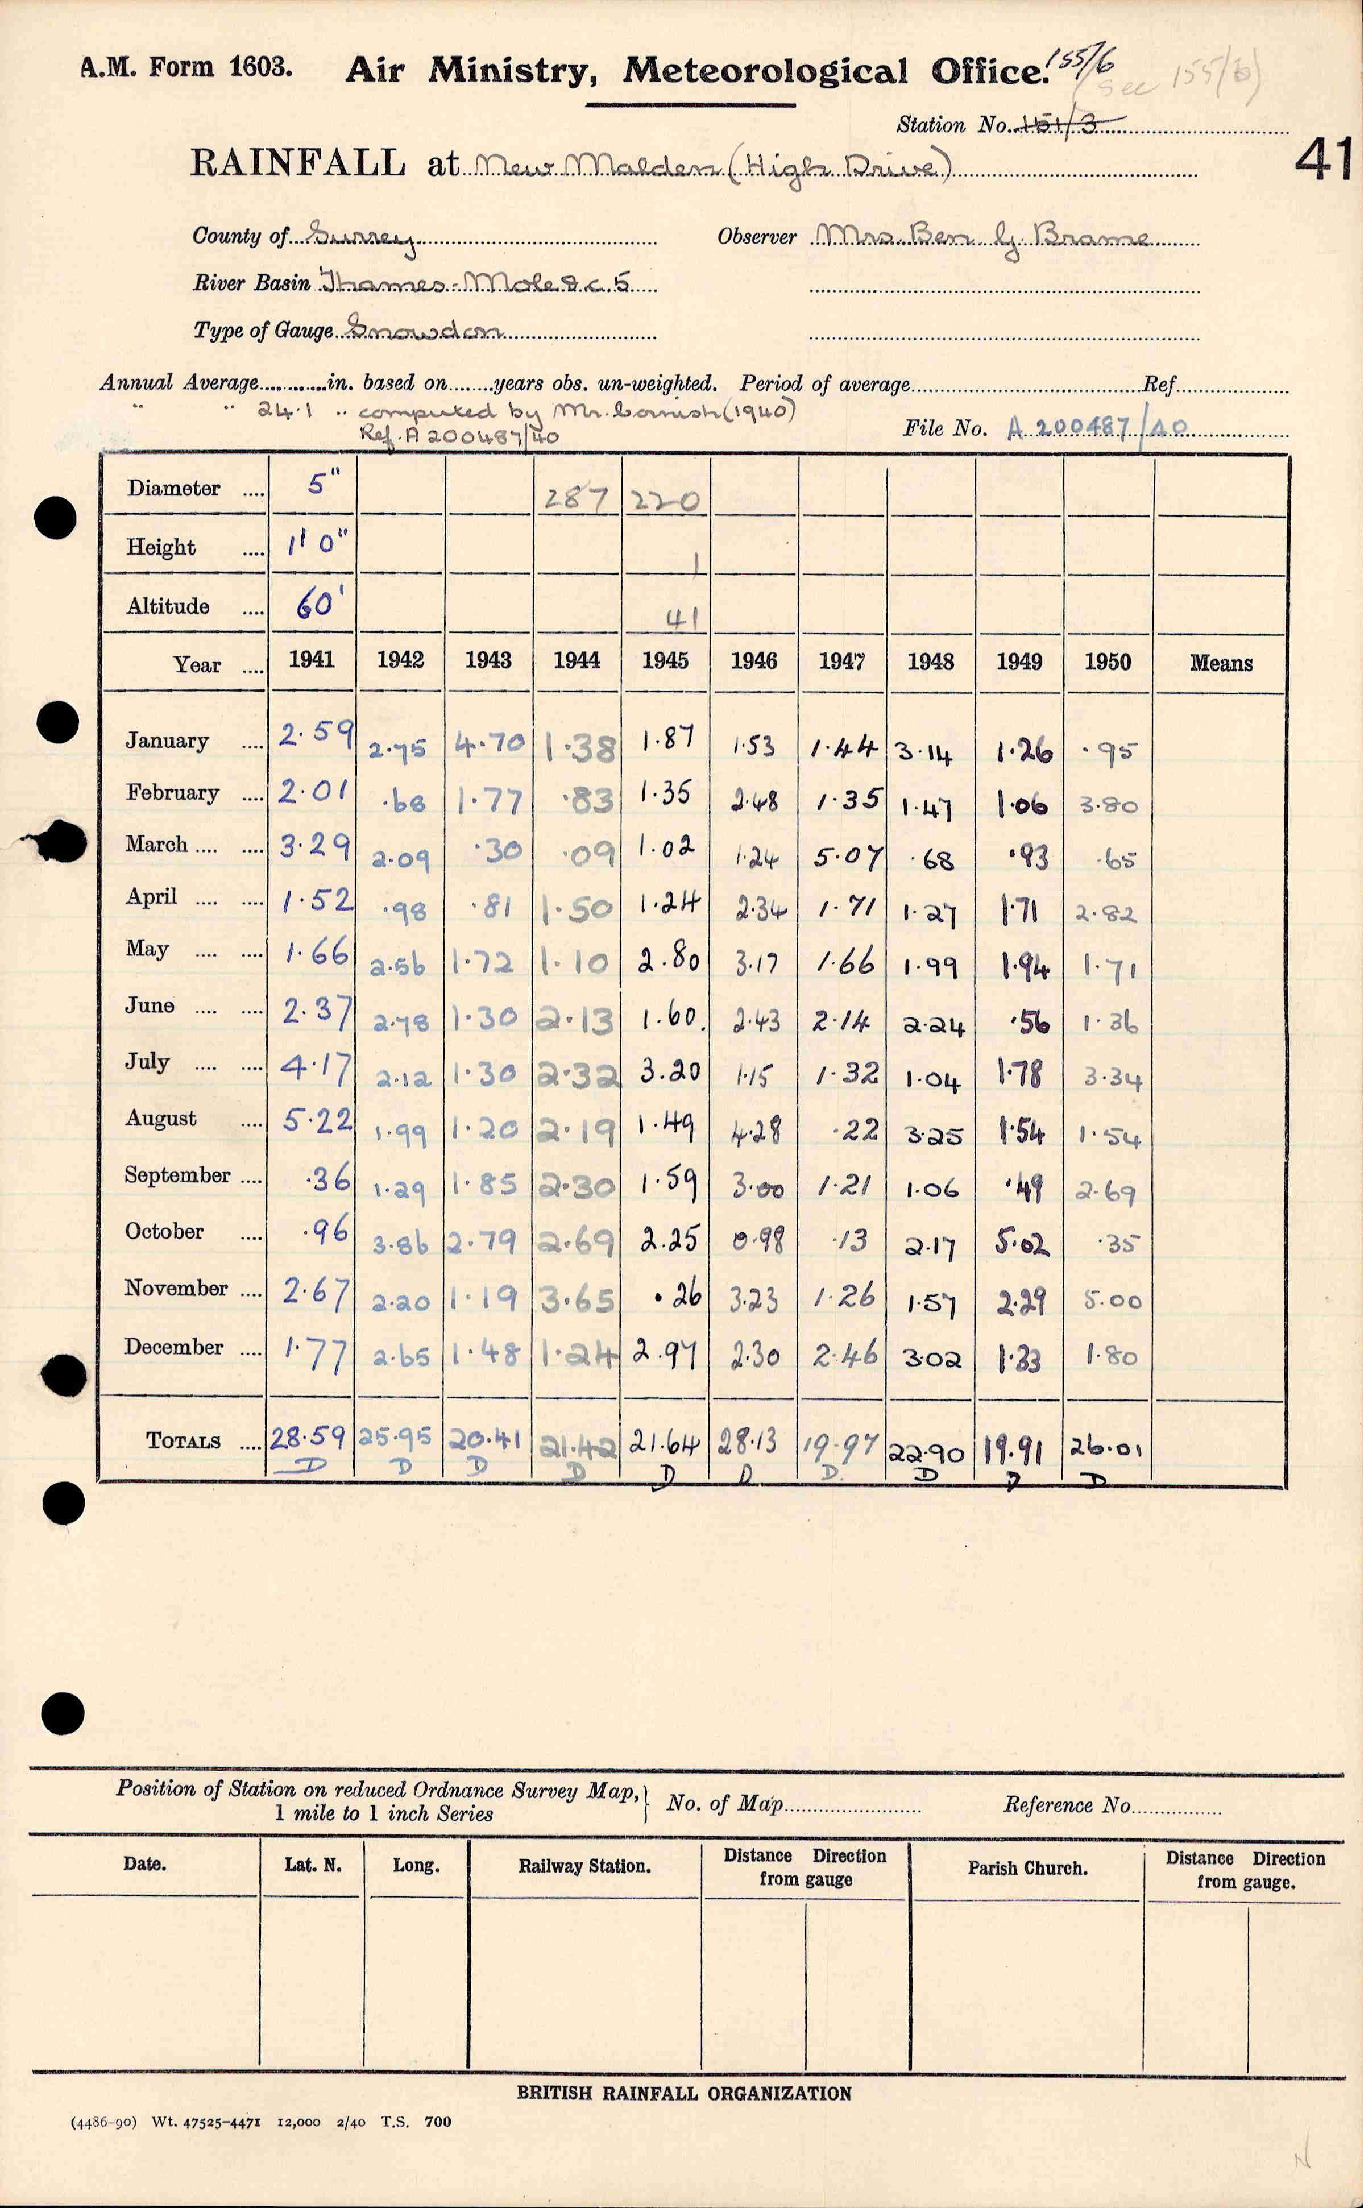 A.M. Form 1603. Air Ministry, Meteorological Office. 155/6 (See 155/6)
Station No. 151/3
41
RAINFALL at New Malden (High Drive)
County of Surrey Observer Mrs. Ben G. Brame
River Basin Thames-Mole &c. 5
Type of Gauge Snowdon
Annual Average............in. based on........years obs. un-weighted. Period of average............Ref............
" " 24.1 " computed by Mr. Cornish (1940)
Ref. A 200487/40
File No. A 200487/40
Diameter .... 5" 287 220
Height .... 1' 0" 1
Altitude .... 60' 41
Year .... 1941 1942 1943 1944 1945 1946 1947 1948 1949 1950 Means
January .... 2.59 2.75 4.70 1.38 1.87 1.53 1.44 3.14 1.26 .95
February .... 2.01 .68 1.77 .83 1.35 2.48 1.35 1.47 1.06 3.80
March .... .... 3.29 2.09 .30 .09 1.02 1.24 5.07 .68 .93 .65
April .... .... 1.52 .98 .81 1.50 1.24 2.34 1.71 1.27 1.71 2.82
May .... .... 1.66 2.56 1.72 1.10 2.80 3.17 1.66 1.99 1.94 1.71
June .... .... 2.37 2.78 1.30 2.13 1.60 2.43 2.14 2.24 .56 1.36
July .... .... 4.17 2.12 1.30 2.32 3.20 1.15 1.32 1.04 1.78 3.34
August .... 5.22 1.99 1.20 2.19 1.49 4.28 .22 3.25 1.54 1.54
September .... .36 1.29 1.85 2.30 1.59 3.00 1.21 1.06 .49 2.69
October .... .96 3.86 2.79 2.69 2.25 0.98 .13 2.17 5.02 .35
November .... 2.67 2.20 1.19 3.65 .26 3.23 1.26 1.57 2.29 5.00
December .... 1.77 2.65 1.48 1.24 2.97 2.30 2.46 3.02 1.33 1.80
TOTALS .... 28.59 25.95 20.41 21.42 21.64 28.13 19.97 22.90 19.91 26.01
D D D D D D D D D D
Position of Station on reduced Ordnance Survey Map, 1 mile to 1 inch Series } No. of Map............ Reference No............
Date. Lat. N. Long. Railway Station. Distance from gauge Direction Parish Church. Distance from gauge. Direction
BRITISH RAINFALL ORGANIZATION
(4486-90) Wt. 47525-4471 12,000 2/40 T.S. 700
N